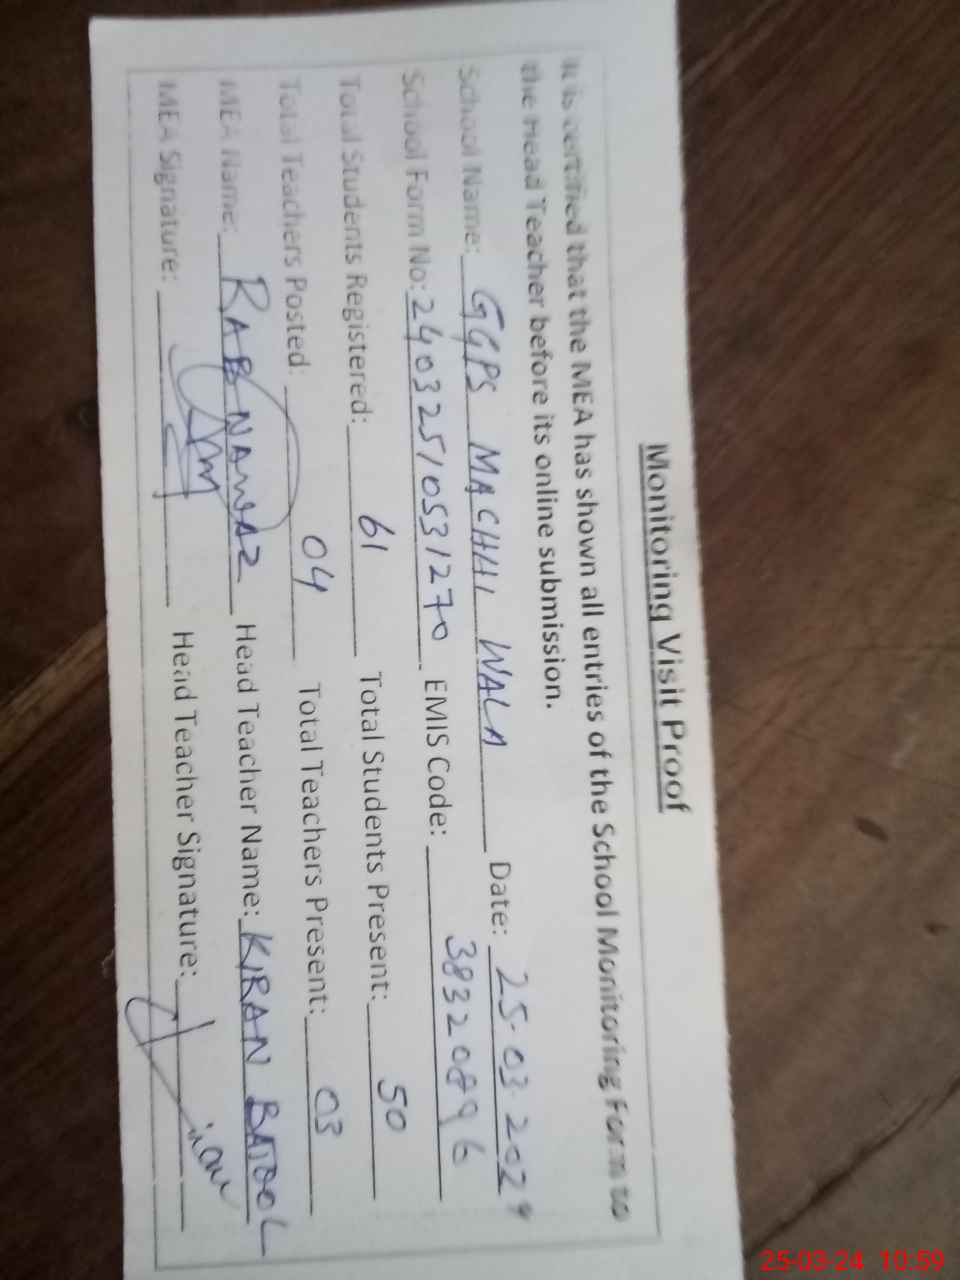 Monitoring Visit Proof
It is certified that the MEA has shown all entries of the School Monitoring Form to
the Head Teacher before its online submission.
School Name: GGPS MACHHI WALA Date: 25-03-2024
School Form No: 24032510531270 EMIS Code: 38320896
Total Students Registered: 61 Total Students Present: 50
Total Teachers Posted: 04 Total Teachers Present: 03
MEA Name: RAB NAWAZ Head Teacher Name: KIRAN BATOOL
MEA Signature: Head Teacher Signature:
25-03-24 10:59